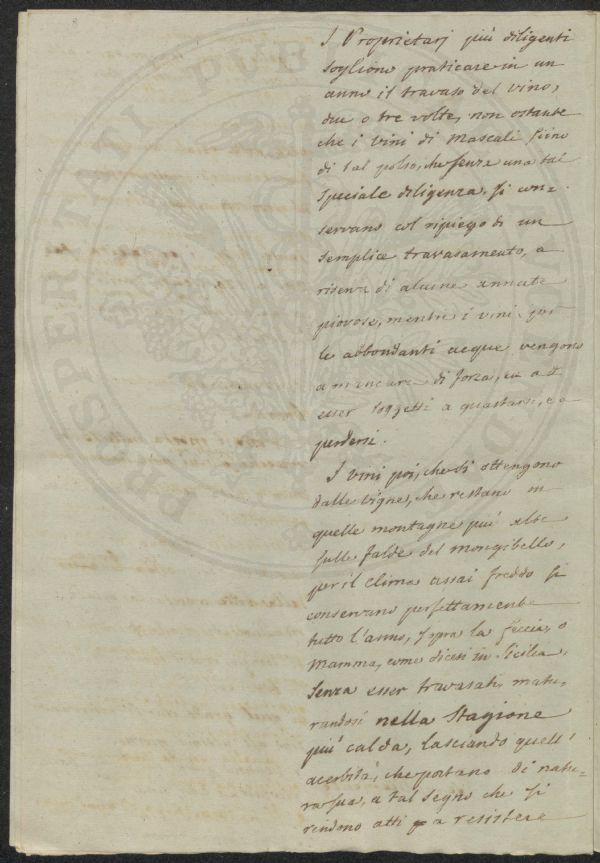 I Proprietarj più diligenti
sogliono praticare in un
anno il travaso del vino,
due o tre volte, non ostante
che i vini di Mascali siano
di tal polso, che senza una tal
speciale diligenza, si con=
servano col ripiego di un
semplice travasamento, a
riserva di alcune annate
piovose, mentre i vini per
le abbondanti acque vengono
a mancare di forza, ed
esser soggetti a guastarsi, e a
perdersi.
I vini poi, che si ottengono
dalle vigne, che restano in
quelle montagne più alte
sulle falde del mongibello,
per il clima assai freddo si
conservano perfettamente
tutto l'anno, sopra la feccia, o
Mamma, come dicesi in Sicilia,
senza esser travasati, matu-
randosi nella Stagione
più calda, lasciando quell'
acerbità, che portano di natu=
ra sua, a tal segno che si
rendono atti a resistere
PROSPERITATI PUB